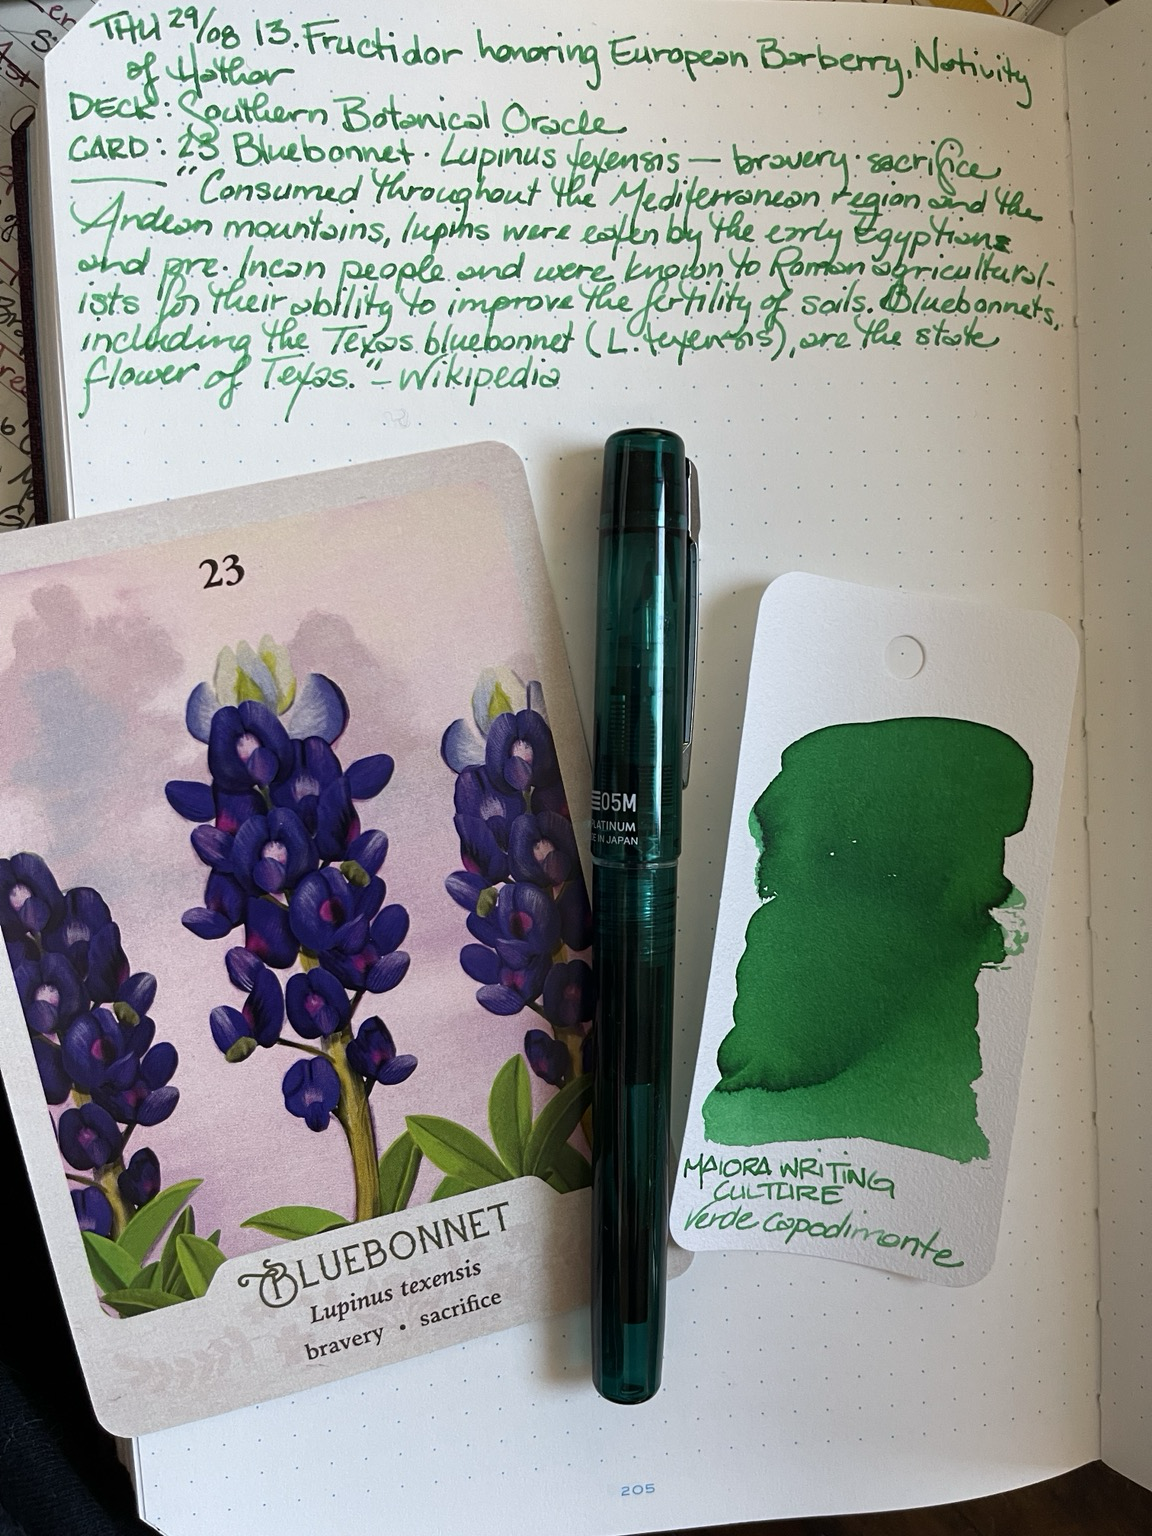 THU 29/08 13. Fructidor honoring European Barberry, Nativity
of Hathor
DECK: Southern Botanical Oracle
CARD: 23 Bluebonnet · Lupinus texensis — bravery · sacrifice
"Consumed throughout the Mediterranean region and the
Andean mountains, lupins were eaten by the early Egyptians
and pre-Incan people and were known to Roman agricultural-
ists for their ability to improve the fertility of soils. Bluebonnets,
including the Texas bluebonnet (L. texensis), are the state
flower of Texas." — Wikipedia
23
BLUEBONNET
Lupinus texensis
bravery • sacrifice
05M
PLATINUM
IN JAPAN
MAIORA WRITING
CULTURE
Verde Capodimonte
205